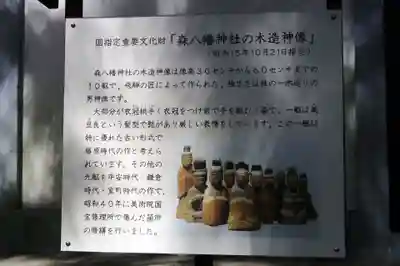 国指定重要文化財「森八幡神社の木造神像」
(昭和15年10月21日指定)
森八幡神社の木造神像は像高30センチから60センチまでの
10躯で、飛騨の匠によって作られた、檜または桂の一木造りの
男神像です。
大部分が衣冠拱手(衣冠をつけ前で手を組む)姿で、一躯は美
豆良という髪型で髭があり厳しい表情をしています。この一躯は
特に優れた古い形式で
藤原時代の作と考えら
れています。その他の
九躯は平安時代・鎌倉
時代・室町時代の作で、
昭和40年に美術院国
宝修理所で傷んだ箇所
の修繕を行いました。